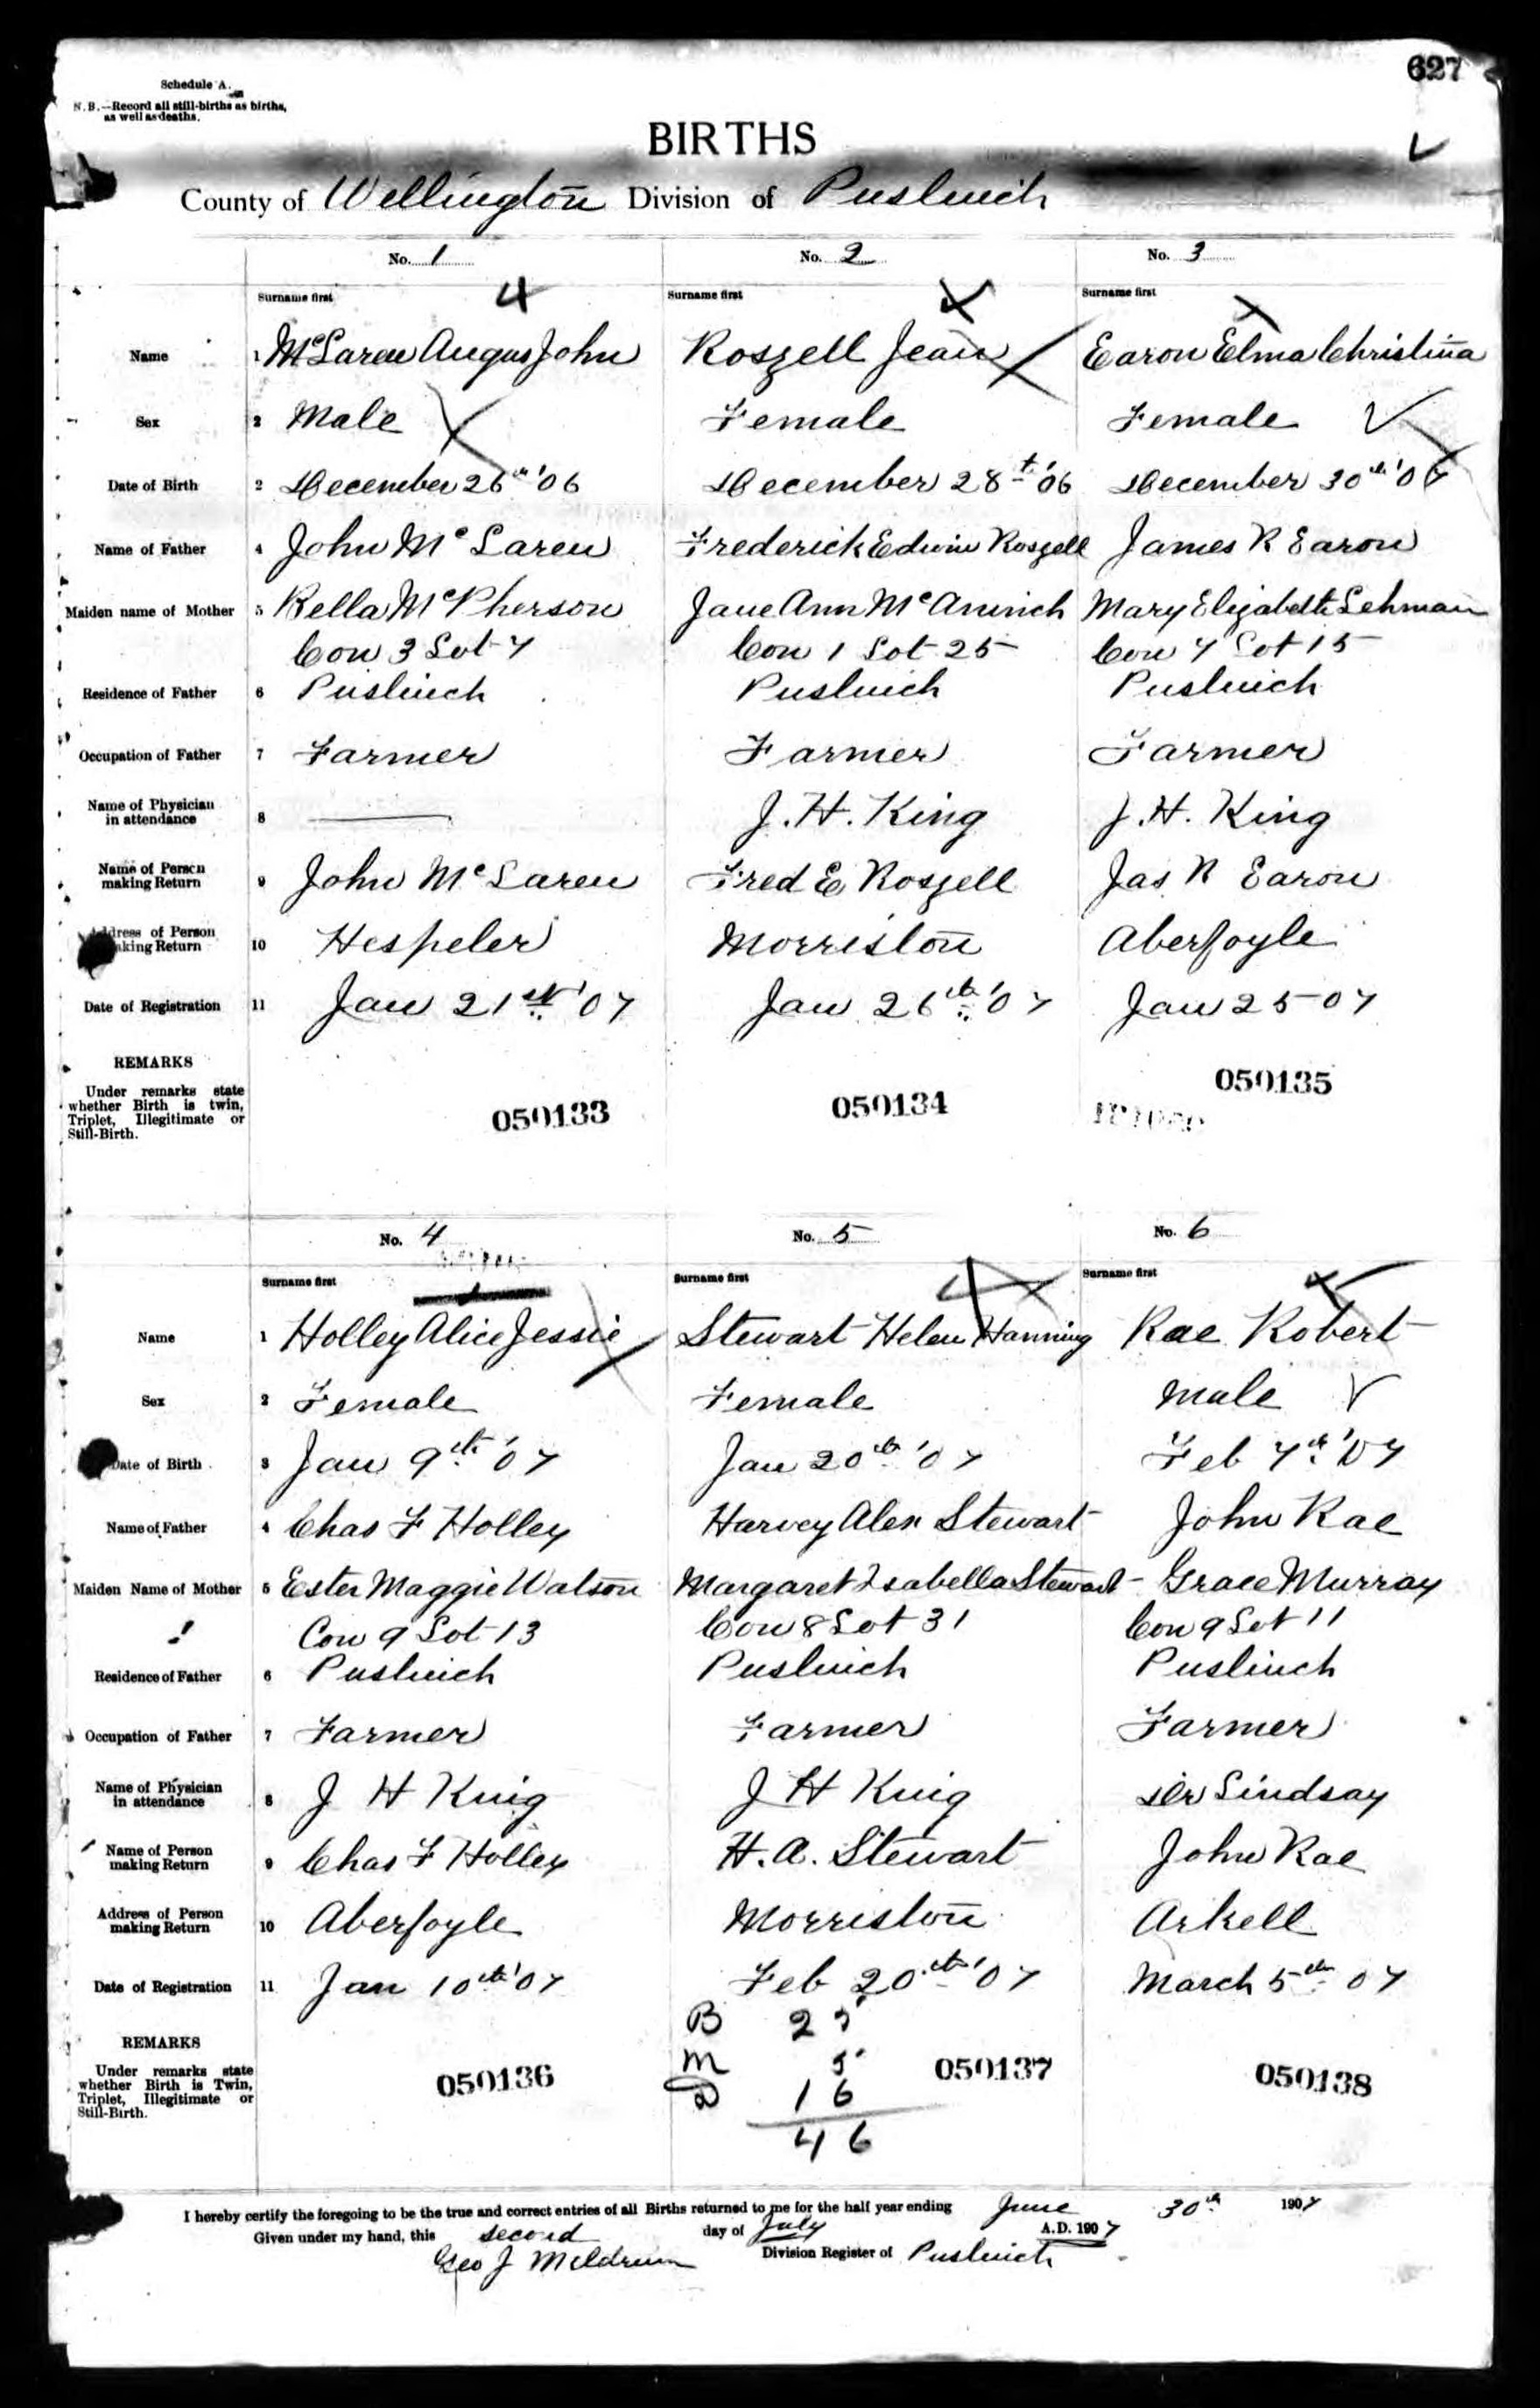 627
Schedule A.
N.B.—Record all still-births as births,
as well as deaths.
BIRTHS
County of Wellington Division of Puslinch
No. 1 No. 2 No. 3
Surname first Surname first Surname first
Name 1 McLaren Angus John Roszell Jean Earon Elma Christina
Sex 2 Male Female Female
Date of Birth 2 December 26th '06 December 28t '06 December 30th '0
Name of Father 4 John McLaren Frederick Edwin Roszell James R Earon
Maiden name of Mother 5 Bella McPherson Jane Ann McAninch Mary Elizabeth Lehman
Con 3 Lot 7 Con 1 Lot 25 Con 7 Lot 15
Residence of Father 6 Puslinch Puslinch Puslinch
Occupation of Father 7 Farmer Farmer Farmer
Name of Physician
in attendance 8 — J. H. King J. H. King
Name of Person
making Return 9 John McLaren Fred E Roszell Jas R Earon
Address of Person
making Return 10 Hespeler Morriston Aberfoyle
Date of Registration 11 Jan 21st '07 Jan 26th '07 Jan 25 07
REMARKS
Under remarks state
whether Birth is twin,
Triplet, Illegitimate or
Still-Birth.
050133 050134 050135
No. 4 No. 5 No. 6
Surname first Surname first Surname first
Name 1 Holley Alice Jessie Stewart Helen Hanning Rae Robert
Sex 2 Female Female Male
Date of Birth 3 Jan 9th '07 Jan 20th '07 Feb 7th '07
Name of Father 4 Chas F Holley Harvey Alex Stewart John Rae
Maiden Name of Mother 5 Ester Maggie Watson Margaret Isabella Stewart Grace Murray
Con 9 Lot 13 Con 8 Lot 31 Con 9 Lot 11
Residence of Father 6 Puslinch Puslinch Puslinch
Occupation of Father 7 Farmer Farmer Farmer
Name of Physician
in attendance 8 J H King J H King Dr Lindsay
Name of Person
making Return 9 Chas F Holley H. A. Stewart John Rae
Address of Person
making Return 10 Aberfoyle Morriston Arkell
Date of Registration 11 Jan 10th '07 Feb 20th '07 March 5th 07
REMARKS
Under remarks state
whether Birth is Twin,
Triplet, Illegitimate or
Still-Birth.
B 25
M 5
D 16
46
050136 050137 050138
I hereby certify the foregoing to be the true and correct entries of all Births returned to me for the half year ending June 30th 1907
Given under my hand, this second day of July A.D. 1907
Geo J Meldrum Division Register of Puslinch